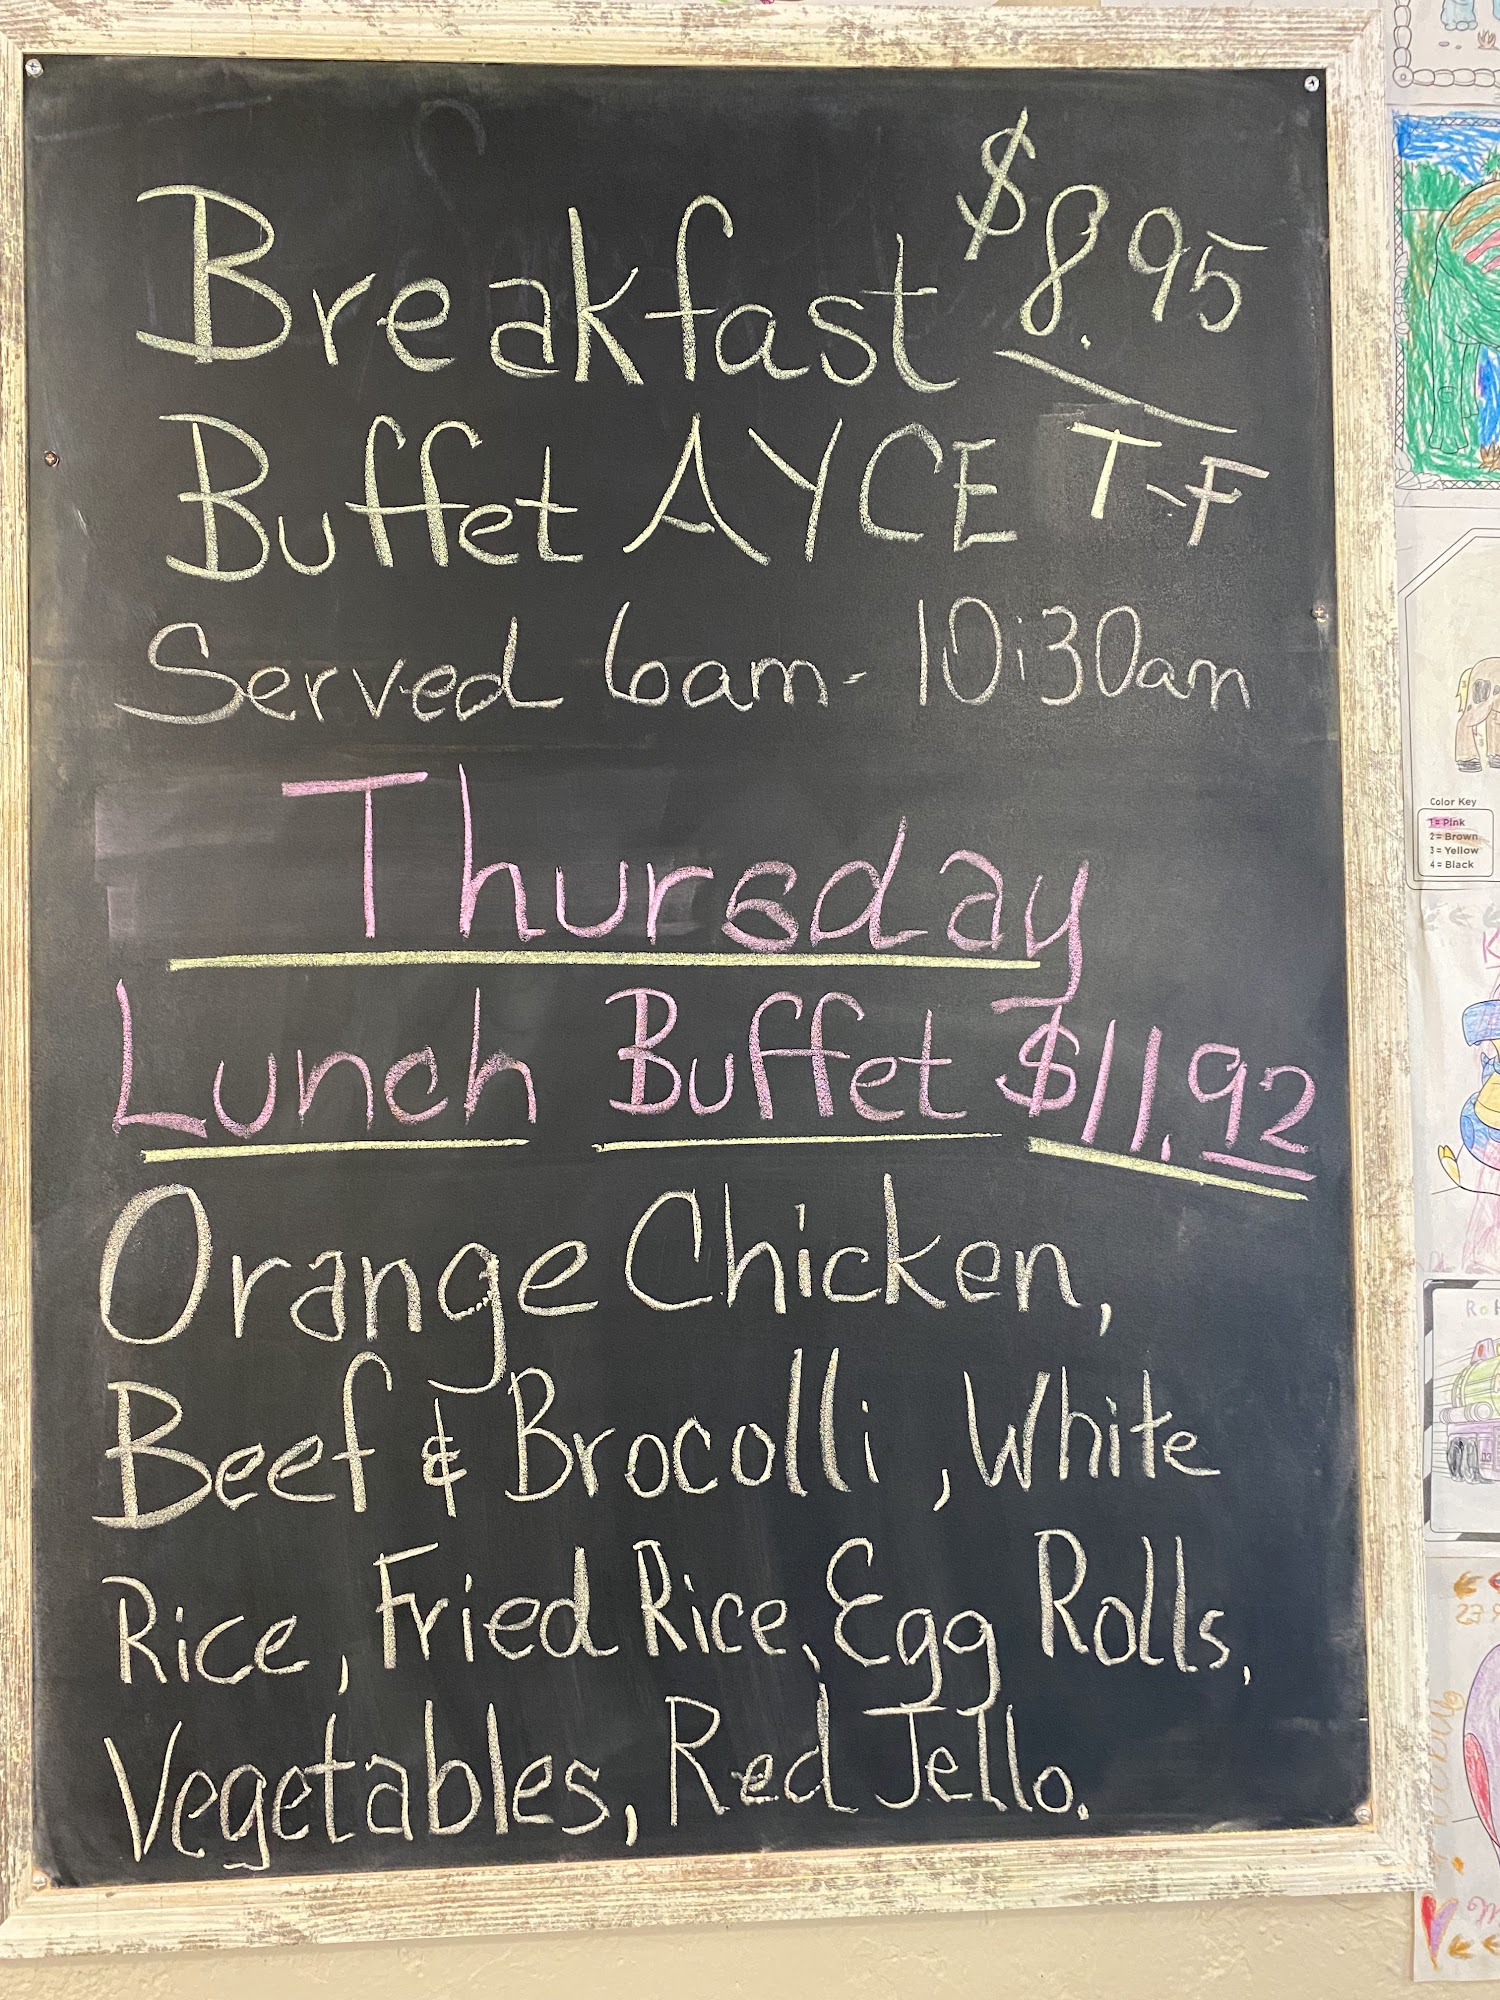 Breakfast $8.95
Buffet AYCE T-F
Served 6am - 10:30am
Thursday
Lunch Buffet $11.92
Orange Chicken,
Beef & Brocolli, White
Rice, Fried Rice, Egg Rolls,
Vegetables, Red Jello.
Color Key
1 = Pink
2 = Brown
3 = Yellow
4 = Black